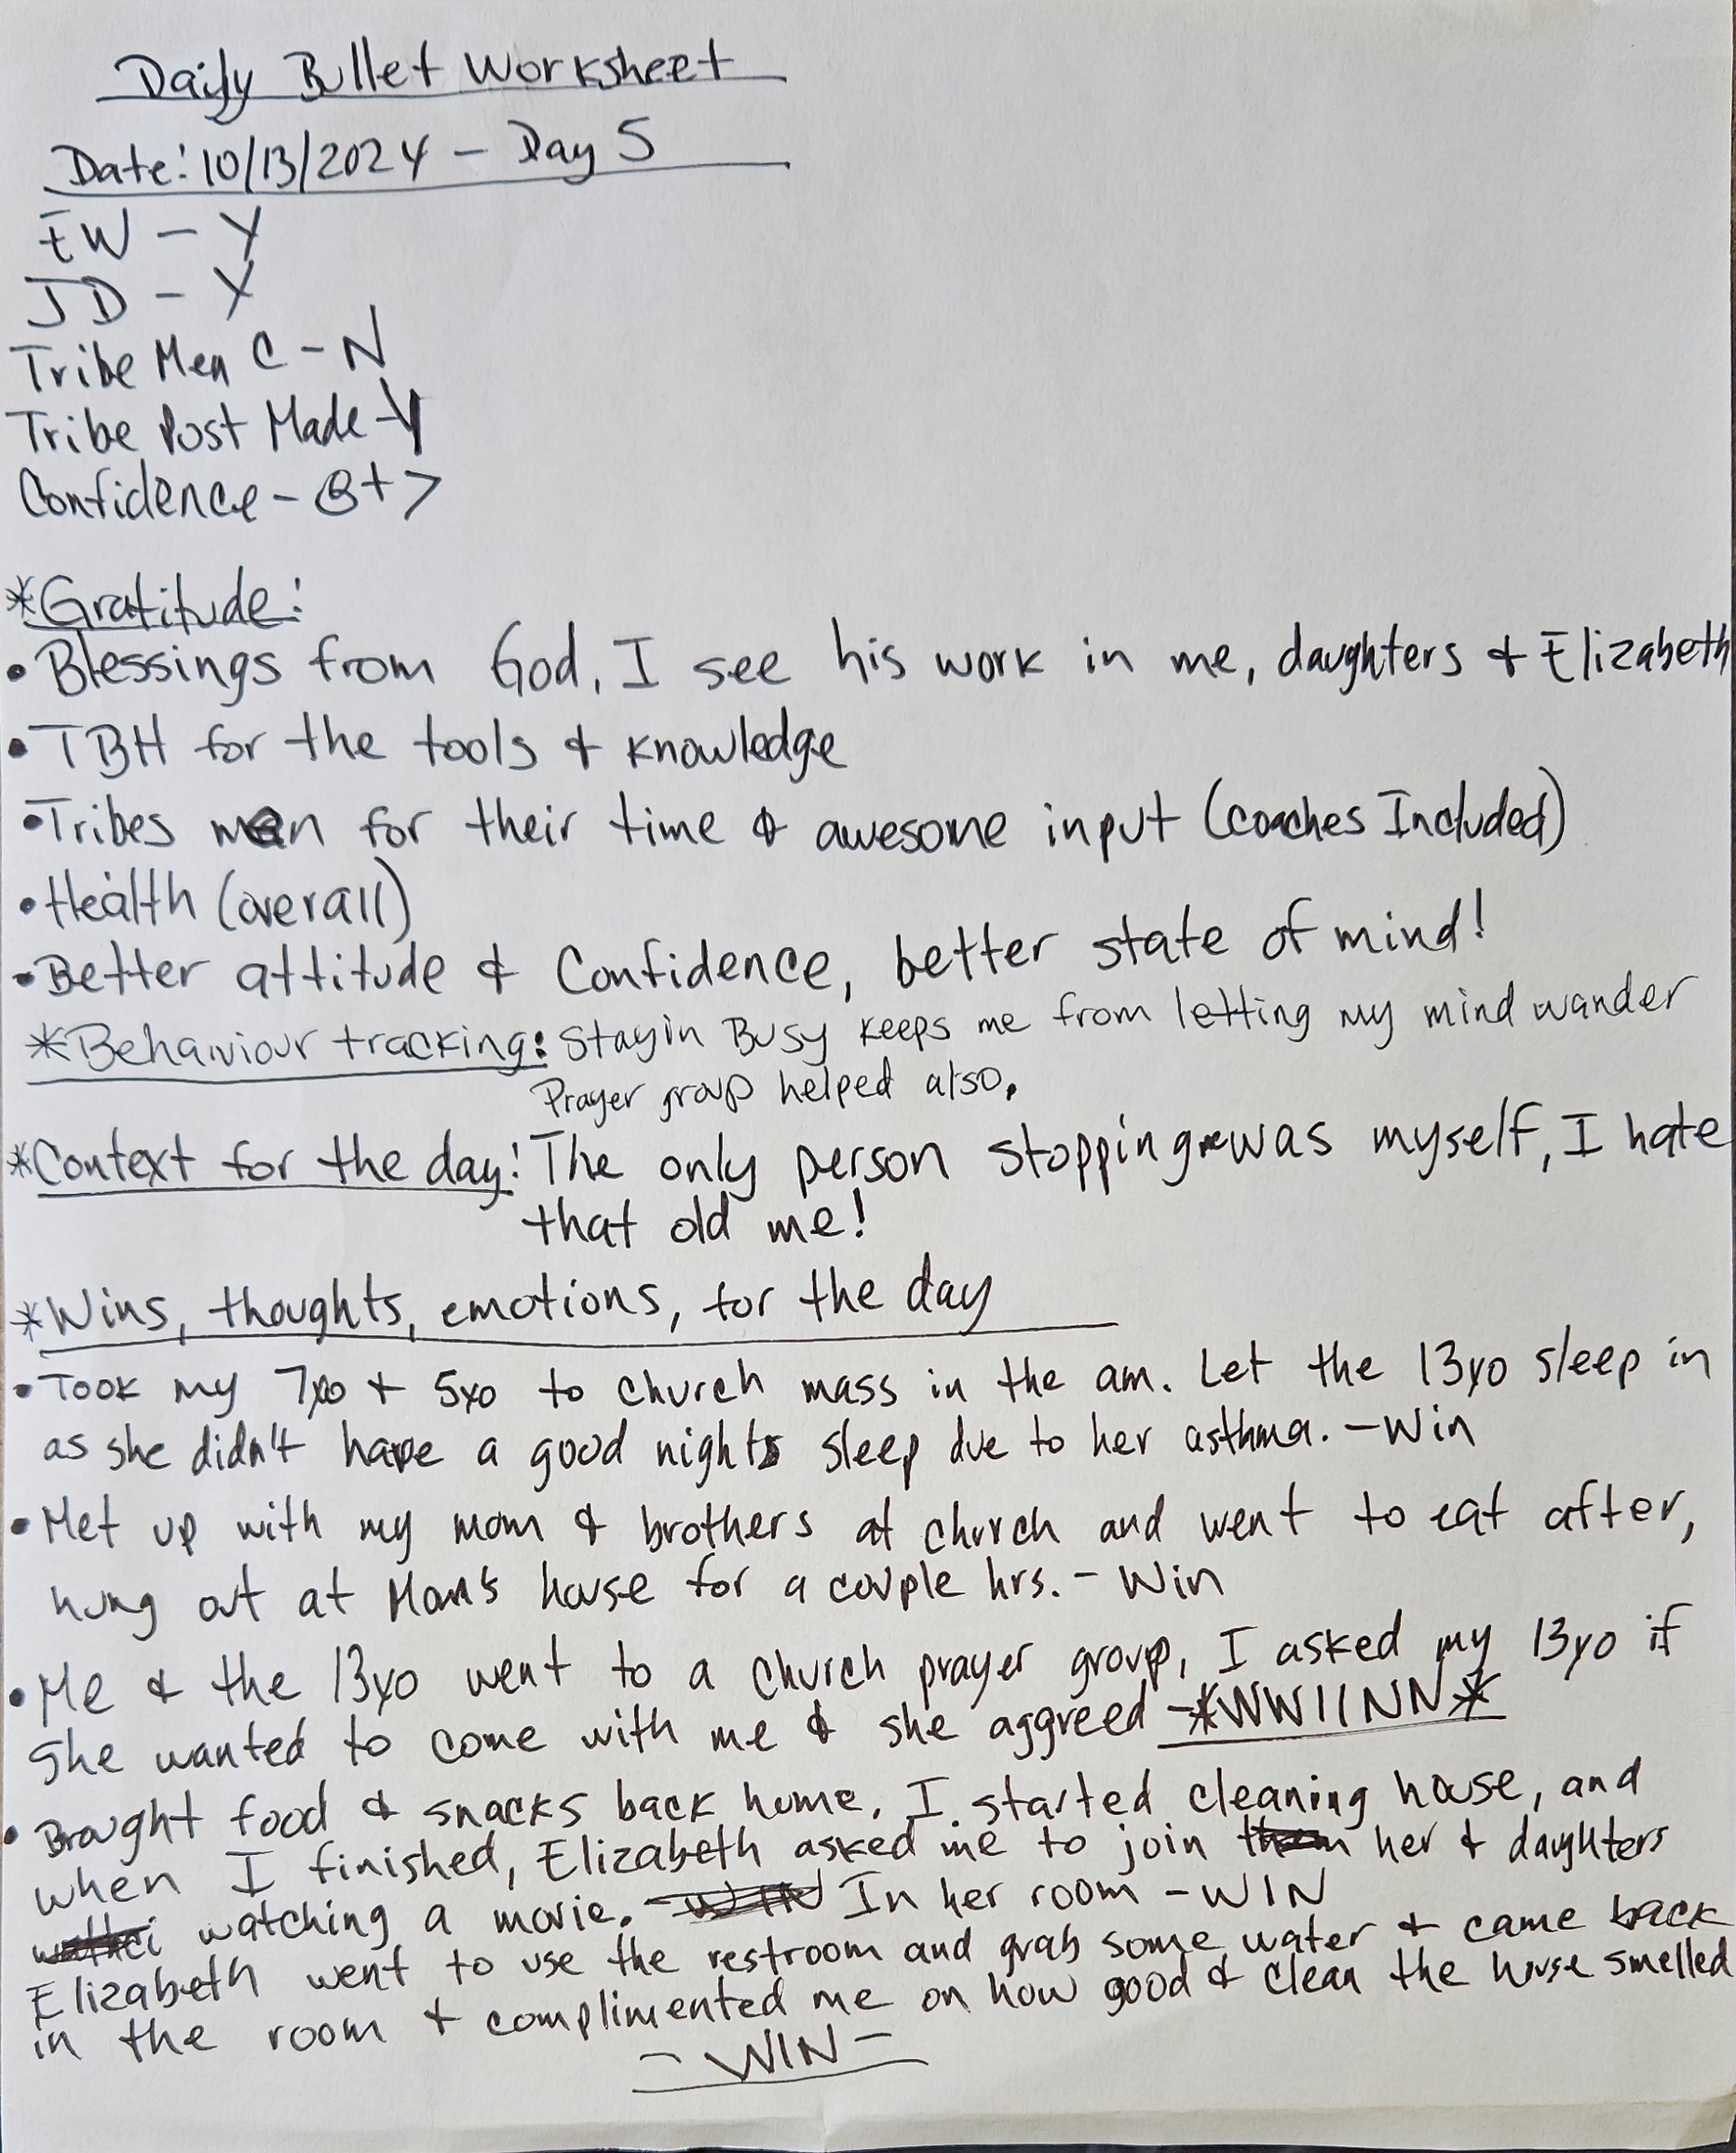 Daily Bullet Worksheet
Date: 10/13/2024 - Day 5
EW - Y
JD - Y
Tribe Men C - N
Tribe Post Made - Y
Confidence - 8+>
*Gratitude:
• Blessings from God, I see his work in me, daughters & Elizabeth
• TBH for the tools & knowledge
• Tribes men for their time & awesome input (coaches Included)
• Health (overall)
• Better attitude & Confidence, better state of mind!
*Behaiviour tracking: Stayin Busy keeps me from letting my mind wander
Prayer group helped also.
*Context for the day: The only person stopping me was myself, I hate
that old me!
*Wins, thoughts, emotions, for the day
• Took my 7yo + 5yo to church mass in the am. Let the 13yo sleep in
as she didn't have a good nights sleep due to her asthma. - Win
• Met up with my mom & brothers at church and went to eat after,
hung out at Mom's house for a couple hrs. - Win
• Me & the 13yo went to a church prayer group, I asked my 13yo if
she wanted to come with me & she aggreed - *WWIINN*
• Brought food & snacks back home, I started cleaning house, and
when I finished, Elizabeth asked me to join her & daughters
watching a movie. In her room - WIN
Elizabeth went to use the restroom and grab some water + came back
in the room + complimented me on how good & clean the house smelled
- WIN -